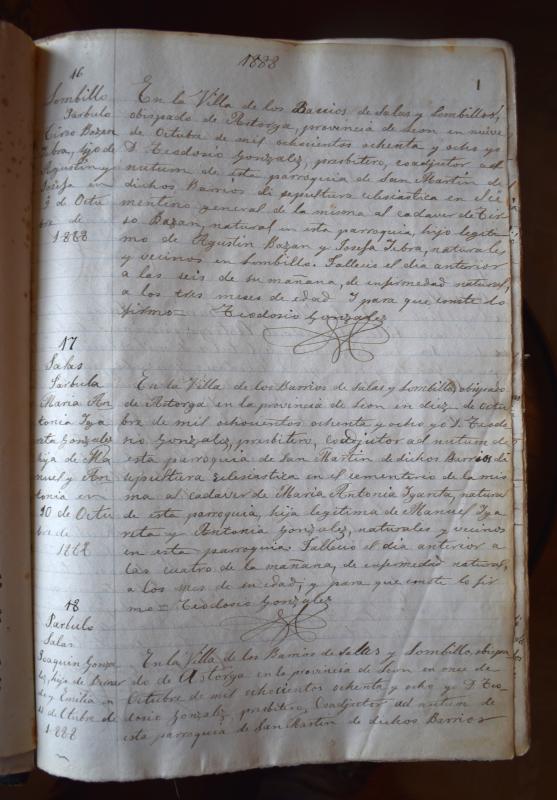 1888
1
16
Lombillo
Parbulo
Tirso Bazan
hijo de
Agustin y
Josefa en
de Octu
bre de
1888
En la Villa de los Barrios de Salas y Lombillo,
obispado de Astorga, provincia de Leon en nueve
de Octubre de mil ochocientos ochenta y ocho yo
D. Teodosio Gonzalez, presbitero, coadjutor ad
nutum de esta parroquia de San Martin de
dichos Barrios di sepultura eclesiastica en el ce
menterio general de la misma al cadaver de Tir
so Bazan, natural en esta parroquia, hijo legiti
mo de Agustin Bazan y Josefa naturales
y vecinos en Lombillo. Fallecio el dia anterior
a las seis de su mañana, de enfermedad natural,
a los tres meses de edad. Y para que conste lo
firmo= Teodosio Gonzalez
17
Salas
Parbula
Maria An
tonia
Gonzalez
hija de Ma
nuel y An
tonia en
10 de Octu
bre de
1888
En la Villa de los Barrios de Salas y Lombillo, obispado
de Astorga en la provincia de Leon en diez de octu
bre de mil ochocientos ochenta y ocho yo D. Teodo
sio Gonzalez, presbitero, coadjutor ad nutum de
esta parroquia de San Martin de dichos Barrios di
sepultura eclesiastica en el cementerio de la mis
ma al cadaver de Maria Antonia natural
de esta parroquia, hija legitima de Manuel
y Antonia Gonzalez, naturales y vecinos
en esta parroquia. Fallecio el dia anterior a
las cuatro de la mañana, de enfermedad natural,
a los mes de su edad; y para que conste lo fir
mo= Teodosio Gonzalez
18
Parbulo
Salas
Joaquin Gonza
lez, hijo de
y Emilia en
11 de Octubre de
1888
En la Villa de los Barrios de Salas y Lombillo, obispa
do de Astorga en la provincia de Leon en once de
Octubre de mil ochocientos ochenta y ocho yo D. Teo-
dosio Gonzalez, presbitero, Coadjutor ad nutum de
esta parroquia de San Martin de dichos Barrios